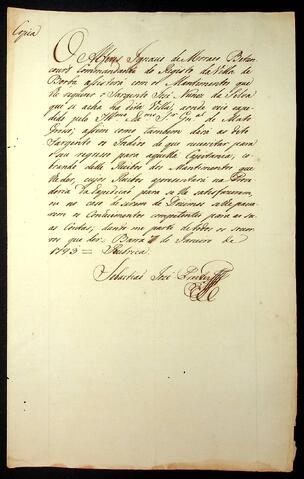 Copia
O Alferes Ignacio de Moraes Beten
court Commandante do Registo da Villa de
Borba assistirá com o Mantimentos que
lhe requerer o Sargento José Nunes da Silva
que se acha na dita Villa, aonde veio expe
dido pelo Illmo e Exmo Snr Gnal de Mato
Groso; assim como tambem dará ao dito
Sargento os Indios de que necesitar para
o seu regreso para aquella Capitania; co
brando delle Recibos dos Mantimentos que
lhe der, cujos Recibos aprezentará na Prove
doria da Expedicaõ para se lhe satisfazerem,
ou no caso de serem de Dizimos se lhe pasa
rem os Conhecimentos competentes para as su
as Contas; dando me parte de todos os socorros
que der. Barra de Janeiro de
1793 = Rubrica.
Sebastiaõ José